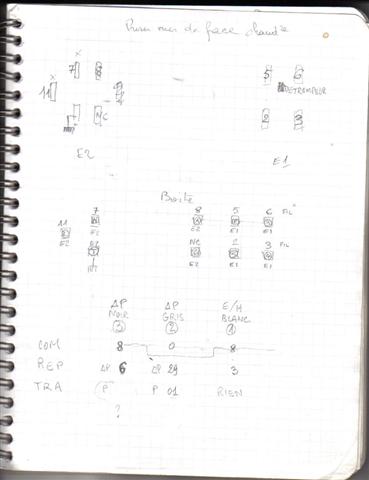 Prise vues de face chaudiè
X
7 8
X
11
NC
5 6
DETROMPEUR
2 3
E2
E1
Boite
7 8 5 6 FIL
11
E2 E2 E2 E1 E1
E2 NC 2 3 FIL
E2 E1 E1
ΔP ΔP E/H
NOIR GRIS BLANC
③ ② ①
COM 8 0 8
REP ΔP 6 ΔP 29 3
TRA P P 01 RIEN
?